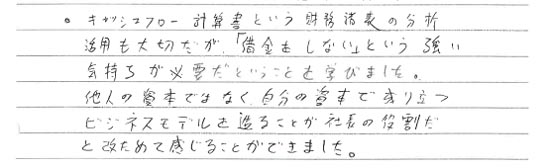 。キャッシュフロー計算書という財務諸表の分析
活用も大切だが、「借金をしない」という強い
気持ちが必要だということを学びました。
他人の資本ではなく、自分の資本で成り立つ
ビジネスモデルを造ることが社長の役割だ
と改ためて感じることができました。